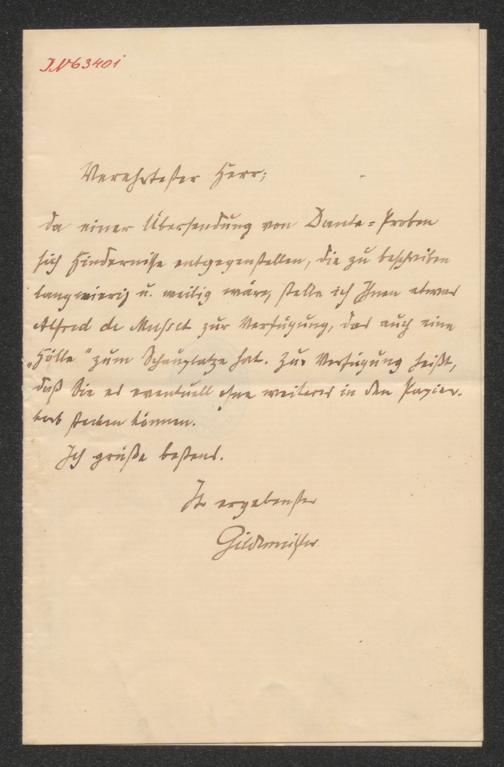 IN 63401
Verehrtester Herr;
Da einer Übersendung von Dante-Proben
sich Hindernisse entgegenstellen, die zu beschreiben
langwierig u. weilig wäre, stelle ich Ihnen etwas
Alfred de Musset zur Verfügung, das auch eine
„Hölle“ zum Schauplatze hat. Zur Verfügung heißt,
daß Sie es eventuell ohne weiteres in den Papier-
korb stecken können.
Ich grüße bestens.
Ihr ergebenster
Gildemeister